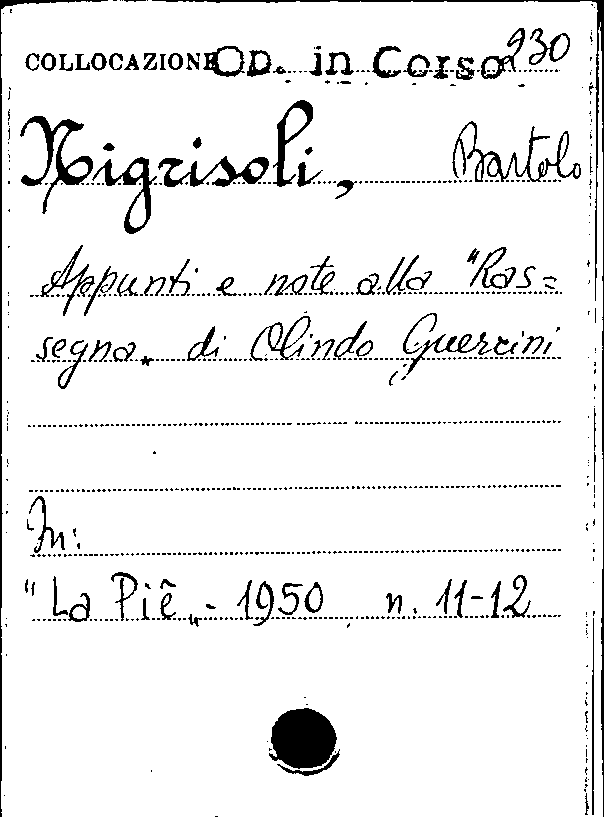 COLLOCAZIONE OD. in Corso 230
Nigrisoli, Bartolo
Appunti e note alla "Ras=
segna„ di Olindo Guerrini
In:
"La Piê„ - 1950 n. 11-12